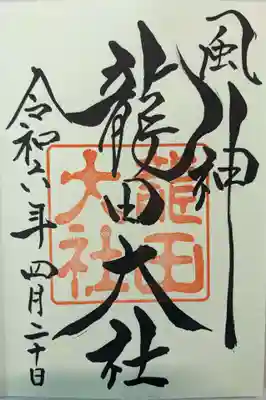 風神
龍田大社
龍田
大社
令和六年四月二十日